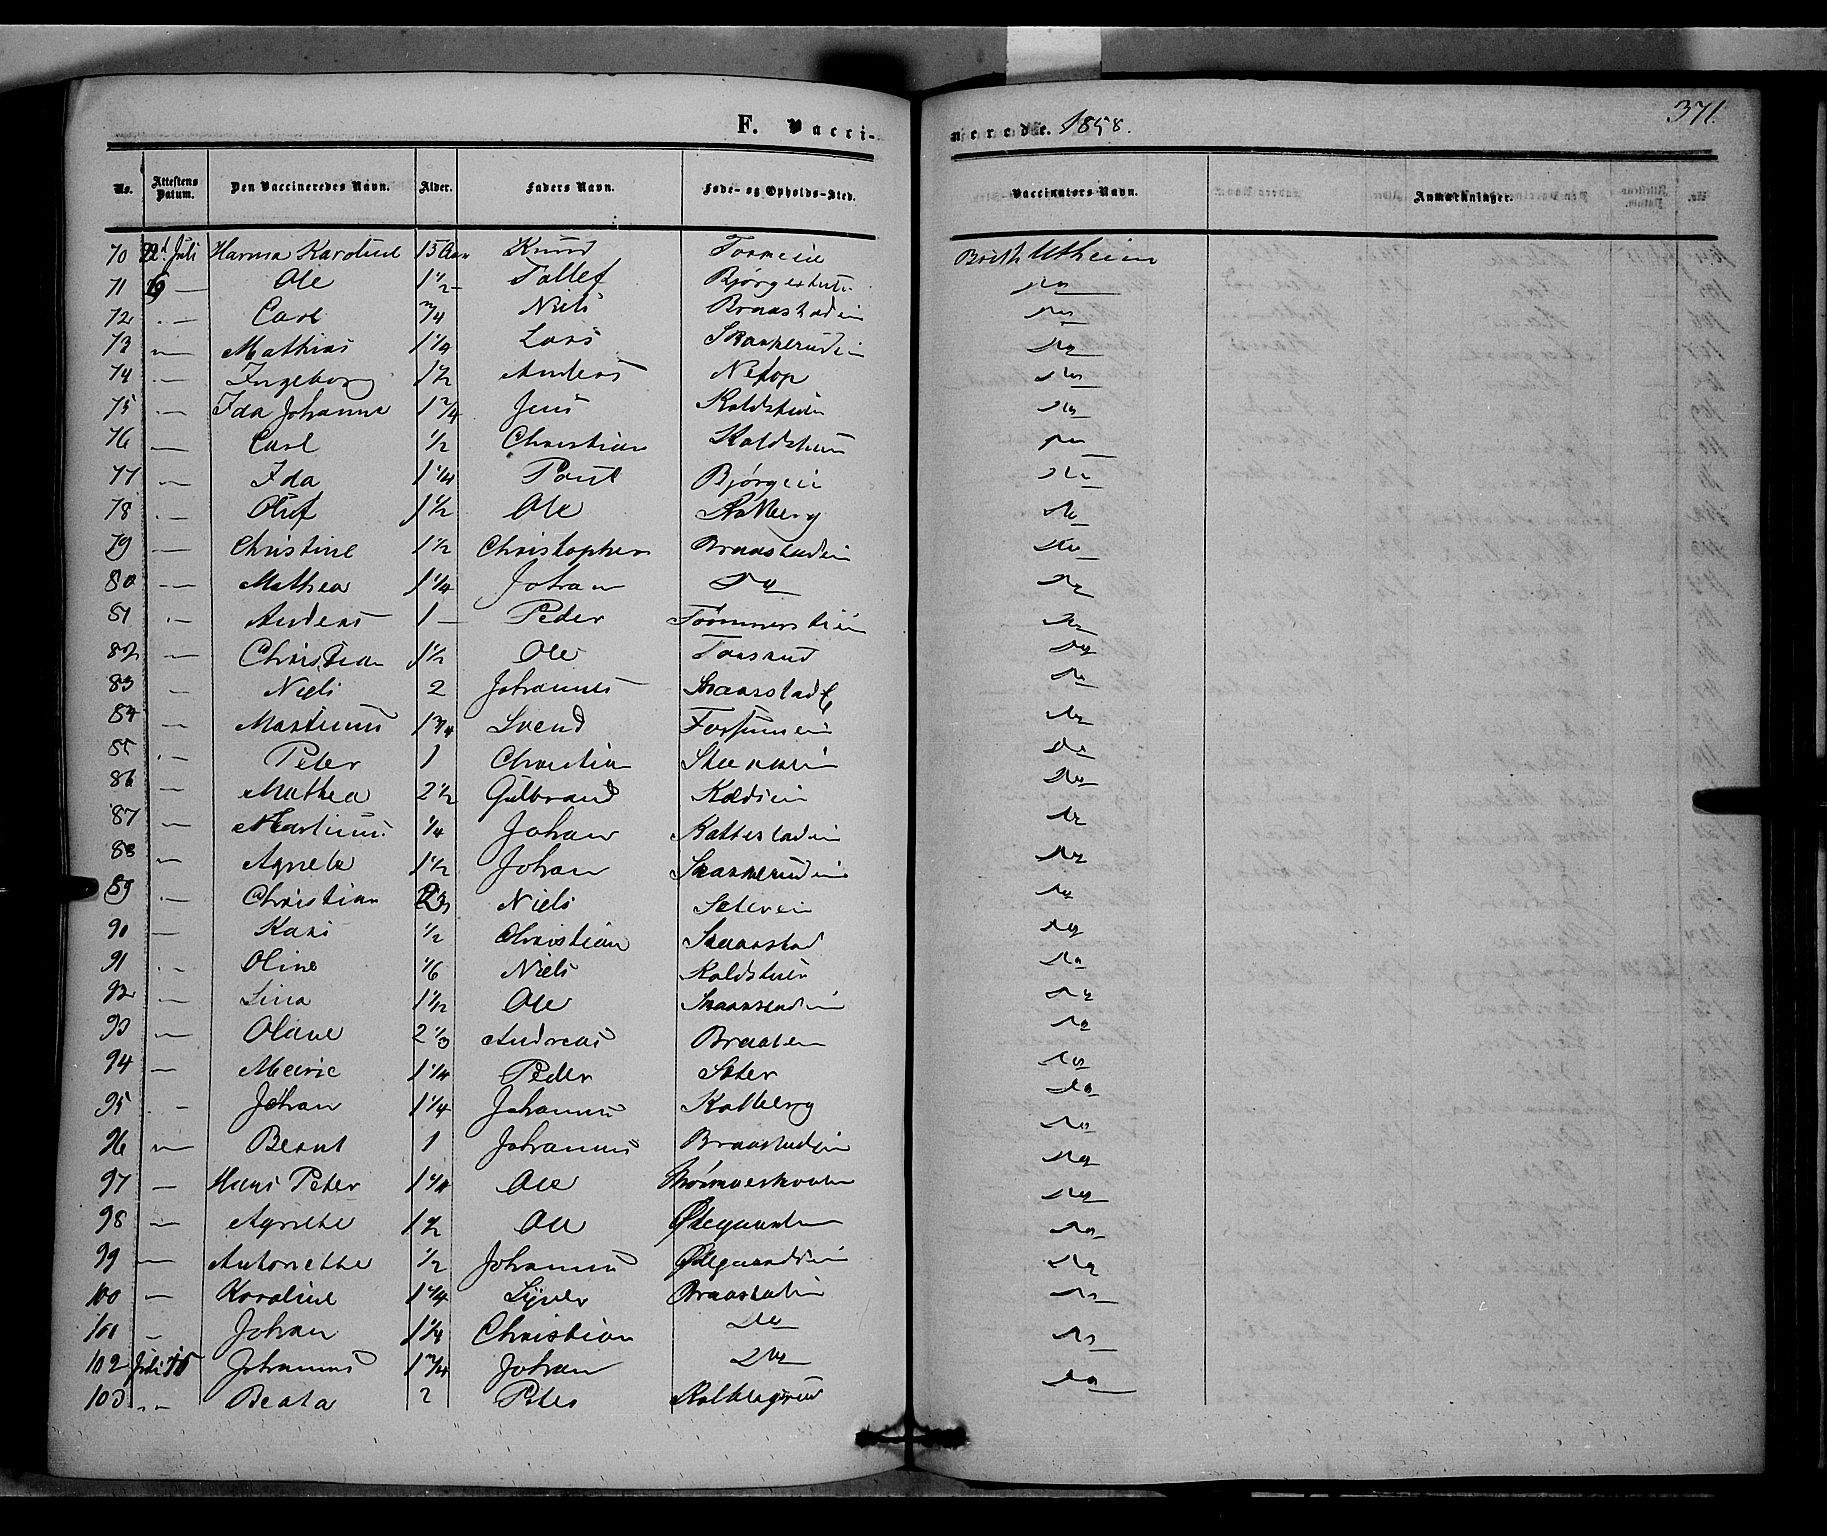 F. Vacci-
nerede. 1858.
371.
No. Attestens Datum. Den Vaccineredes Navn. Alder. Faders Navn. Føde- og Opholds-Sted. Vaccinators Navn. Anmærkninger.
70 Juli Hanna Karoline 15 Aar Knud
71 — Ole 1 1/2 Tollef
72 — Carl 3/4 Niels Braastadeie Do
73 — Mathias 1 1/4 Lars Skaskerudeie Do
74 — Ingeborg 1 1/2 Anders Do
75 — Ida Johanne 1 3/4 Jens Koldstuen Do
76 — Carl 1/2 Christian Koldstuen Do
77 — Ida 1 1/4 Poul Bjørgeie Do
78 — Oluf 1 1/2 Ole Kolberg Do
79 — Christine 1 1/2 Christopher Braastadeie Do
80 — Mathea 1 1/4 Johan Do Do
81 — Anders 1 — Peder Tømmerstuen Do
82 — Christian 1 1/2 Ole Do
83 — Niels 2 Johannes Skaarstad Do
84 — Martinus 1 3/4 Svend Do
85 — Peter 1 Christian Do
86 — Mathea 2 1/2 Gulbrand Do
87 — Martinus 1/4 Johan Kattestadeie Do
88 — Agnete 1 1/2 Johan Skaskerudeie Do
89 — Christian Niels Do
90 — Kari 1/2 Christian Skaarstad Do
91 — Oline 1/6 Niels Koldstuen Do
92 — Lina 1 1/2 Ole Skaarstadeie Do
93 — Olave 2 1/3 Andreas Braaten Do
94 — Marie 1 1/4 Peder Seter Do
95 — Johan 1 1/4 Johannes Kolberg Do
96 — Bernt 1 Johannes Braastadeie Do
97 — Hans Peter 1 1/4 Ole Do
98 — Agnethe 1 1/2 Ole Ødegaarden Do
99 — Antonette 1/2 Johannes Ødegaardeie Do
100 — Karoline 1 1/4 Syver Braastadeie Do
101 — Johan 1 1/4 Christian Do Do
102 Juli 15 Johannes 1 3/4 Johan Do Do
103 — Beata 2 Peter